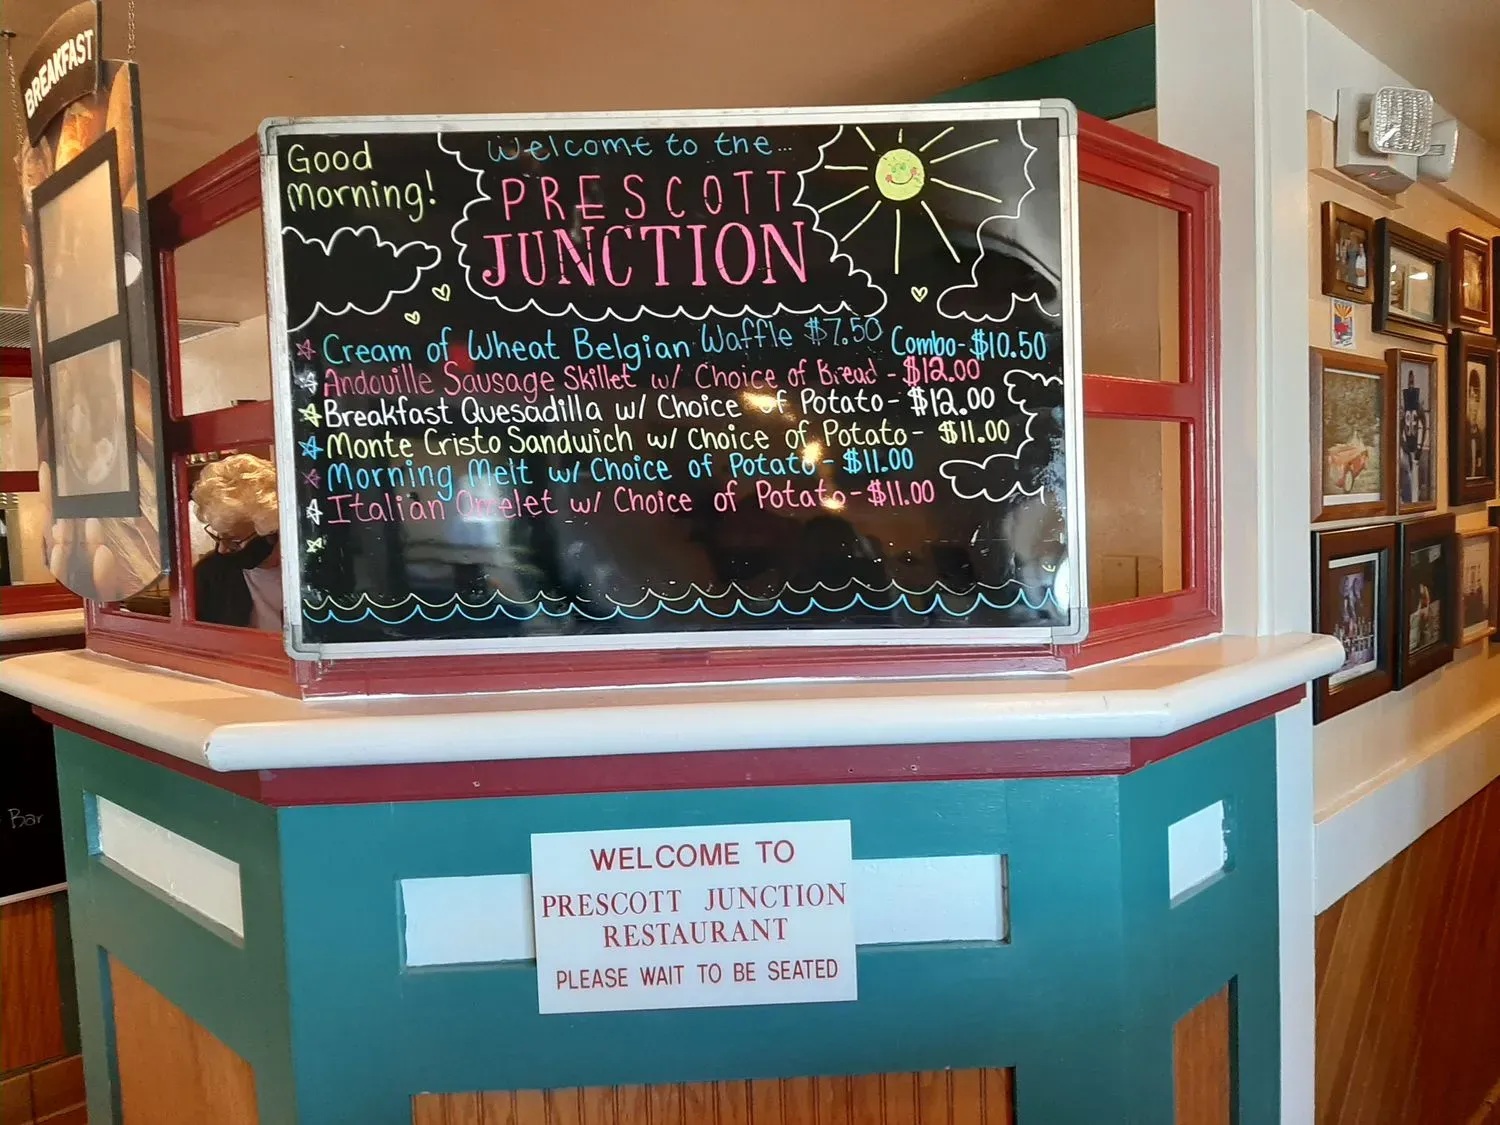 BREAKFAST
Good
Morning!
Welcome to the...
PRESCOTT
JUNCTION
Cream of Wheat Belgian Waffle $7.50 Combo-$10.50
Andouille Sausage Skillet w/ Choice of Bread - $12.00
Breakfast Quesadilla w/ Choice of Potato- $12.00
Monte Cristo Sandwich w/ Choice of Potato- $11.00
Morning Melt w/ Choice of Potato- $11.00
Italian Omelet w/ Choice of Potato-$11.00
Bar
WELCOME TO
PRESCOTT JUNCTION
RESTAURANT
PLEASE WAIT TO BE SEATED